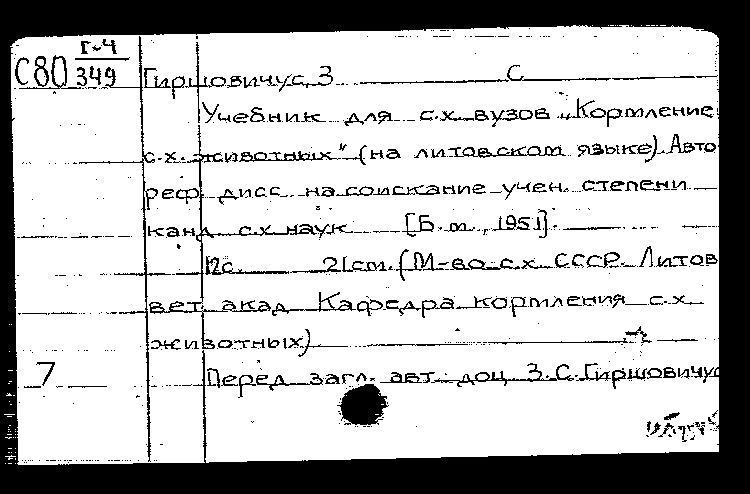 Г-4
С80 349 Гиршовичус, З С
Учебник для с.х. вузов „Кормление
с.х. животных" (на литовском языке). Авто
реф. дисс. на соискание учен. степени
канд. с.х. наук [Б.м., 1951].
12с. 21см. (М-во с.х. СССР. Литов
вет. акад. Кафедра кормления с.х.
животных)
7 Перед загл. авт.: доц. З.С. Гиршовичус